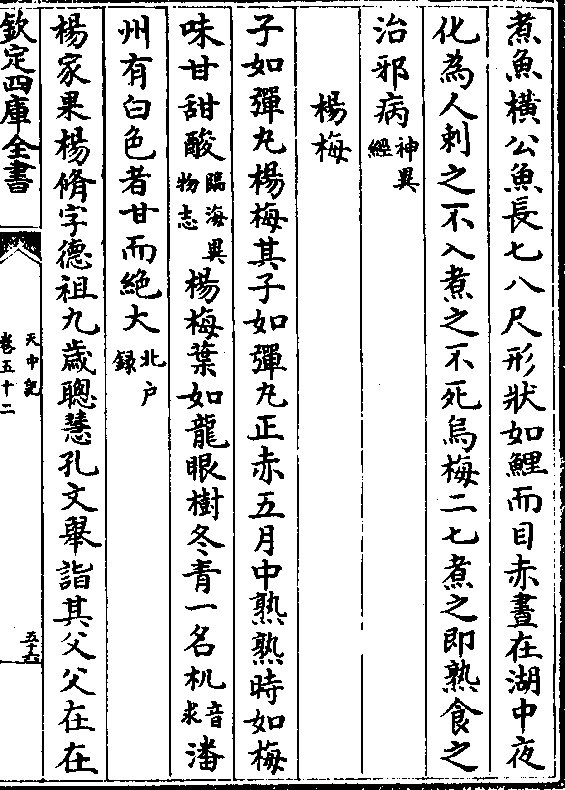 煮魚橫公魚長七八尺形狀如鯉而目赤晝在湖中夜
化為人刺之不入煮之不死烏梅二七煮之即熟食之
治邪病神異經
楊梅
子如彈丸楊梅其子如彈丸正赤五月中熟熟時如梅
味甘甜酸臨海異物志楊梅葉如龍眼樹冬青一名朹音求潘
州有白色者甘而絕大北户録
楊家果楊脩字德祖九歲聰慧孔文舉詣其父父在在
欽定四庫全書
天中記
卷五十二
五十六